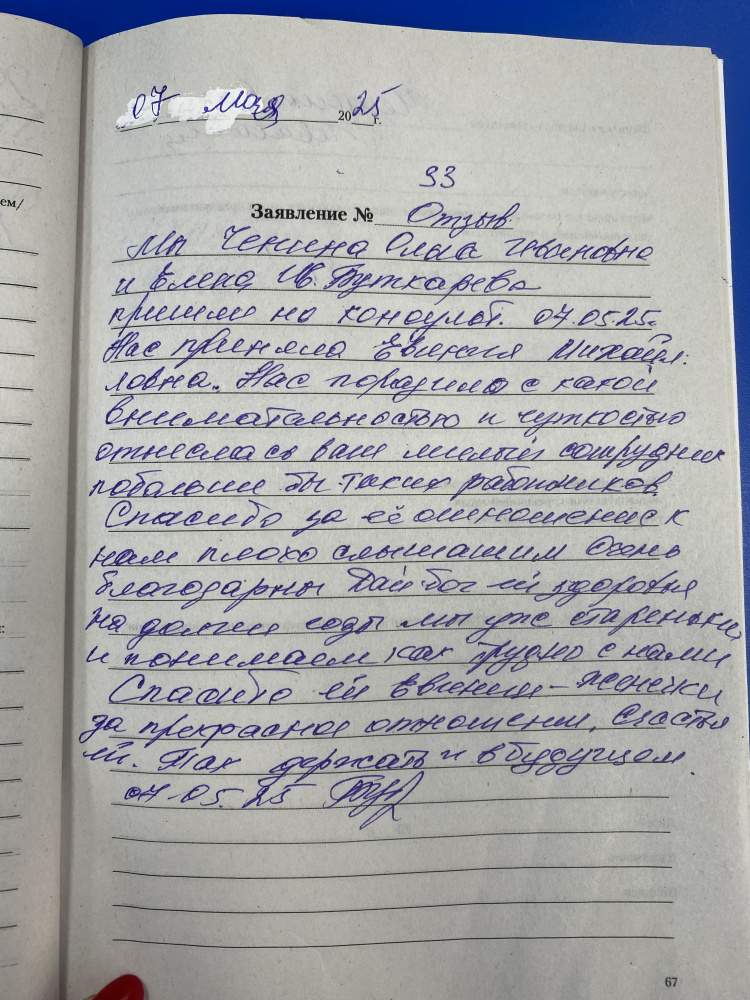 07 мая 2025 г.
33
Заявление № Отзыв
Мы Ченина Ивановна
и Елена Ив. Буткарева
пришли на консульт. 07.05.25г.
Нас приняла Евгения Михайл:
ловна. Нас поразило с какой
внимательностью и чуткостью
отнеслась ваш милый сотрудник
побольши бы таких работников.
Спасибо за её отношение к
нам плохо слышащим Очень
благодарны Дай бог ей здоровья
на долгие годы мы уже старенькие,
и понимаем как трудно с нами
Спасибо ей Евгении – Женечки
за прекрасное отношение, Счастья
ей. Так держать и в будущем
07.05.25
67
ем/